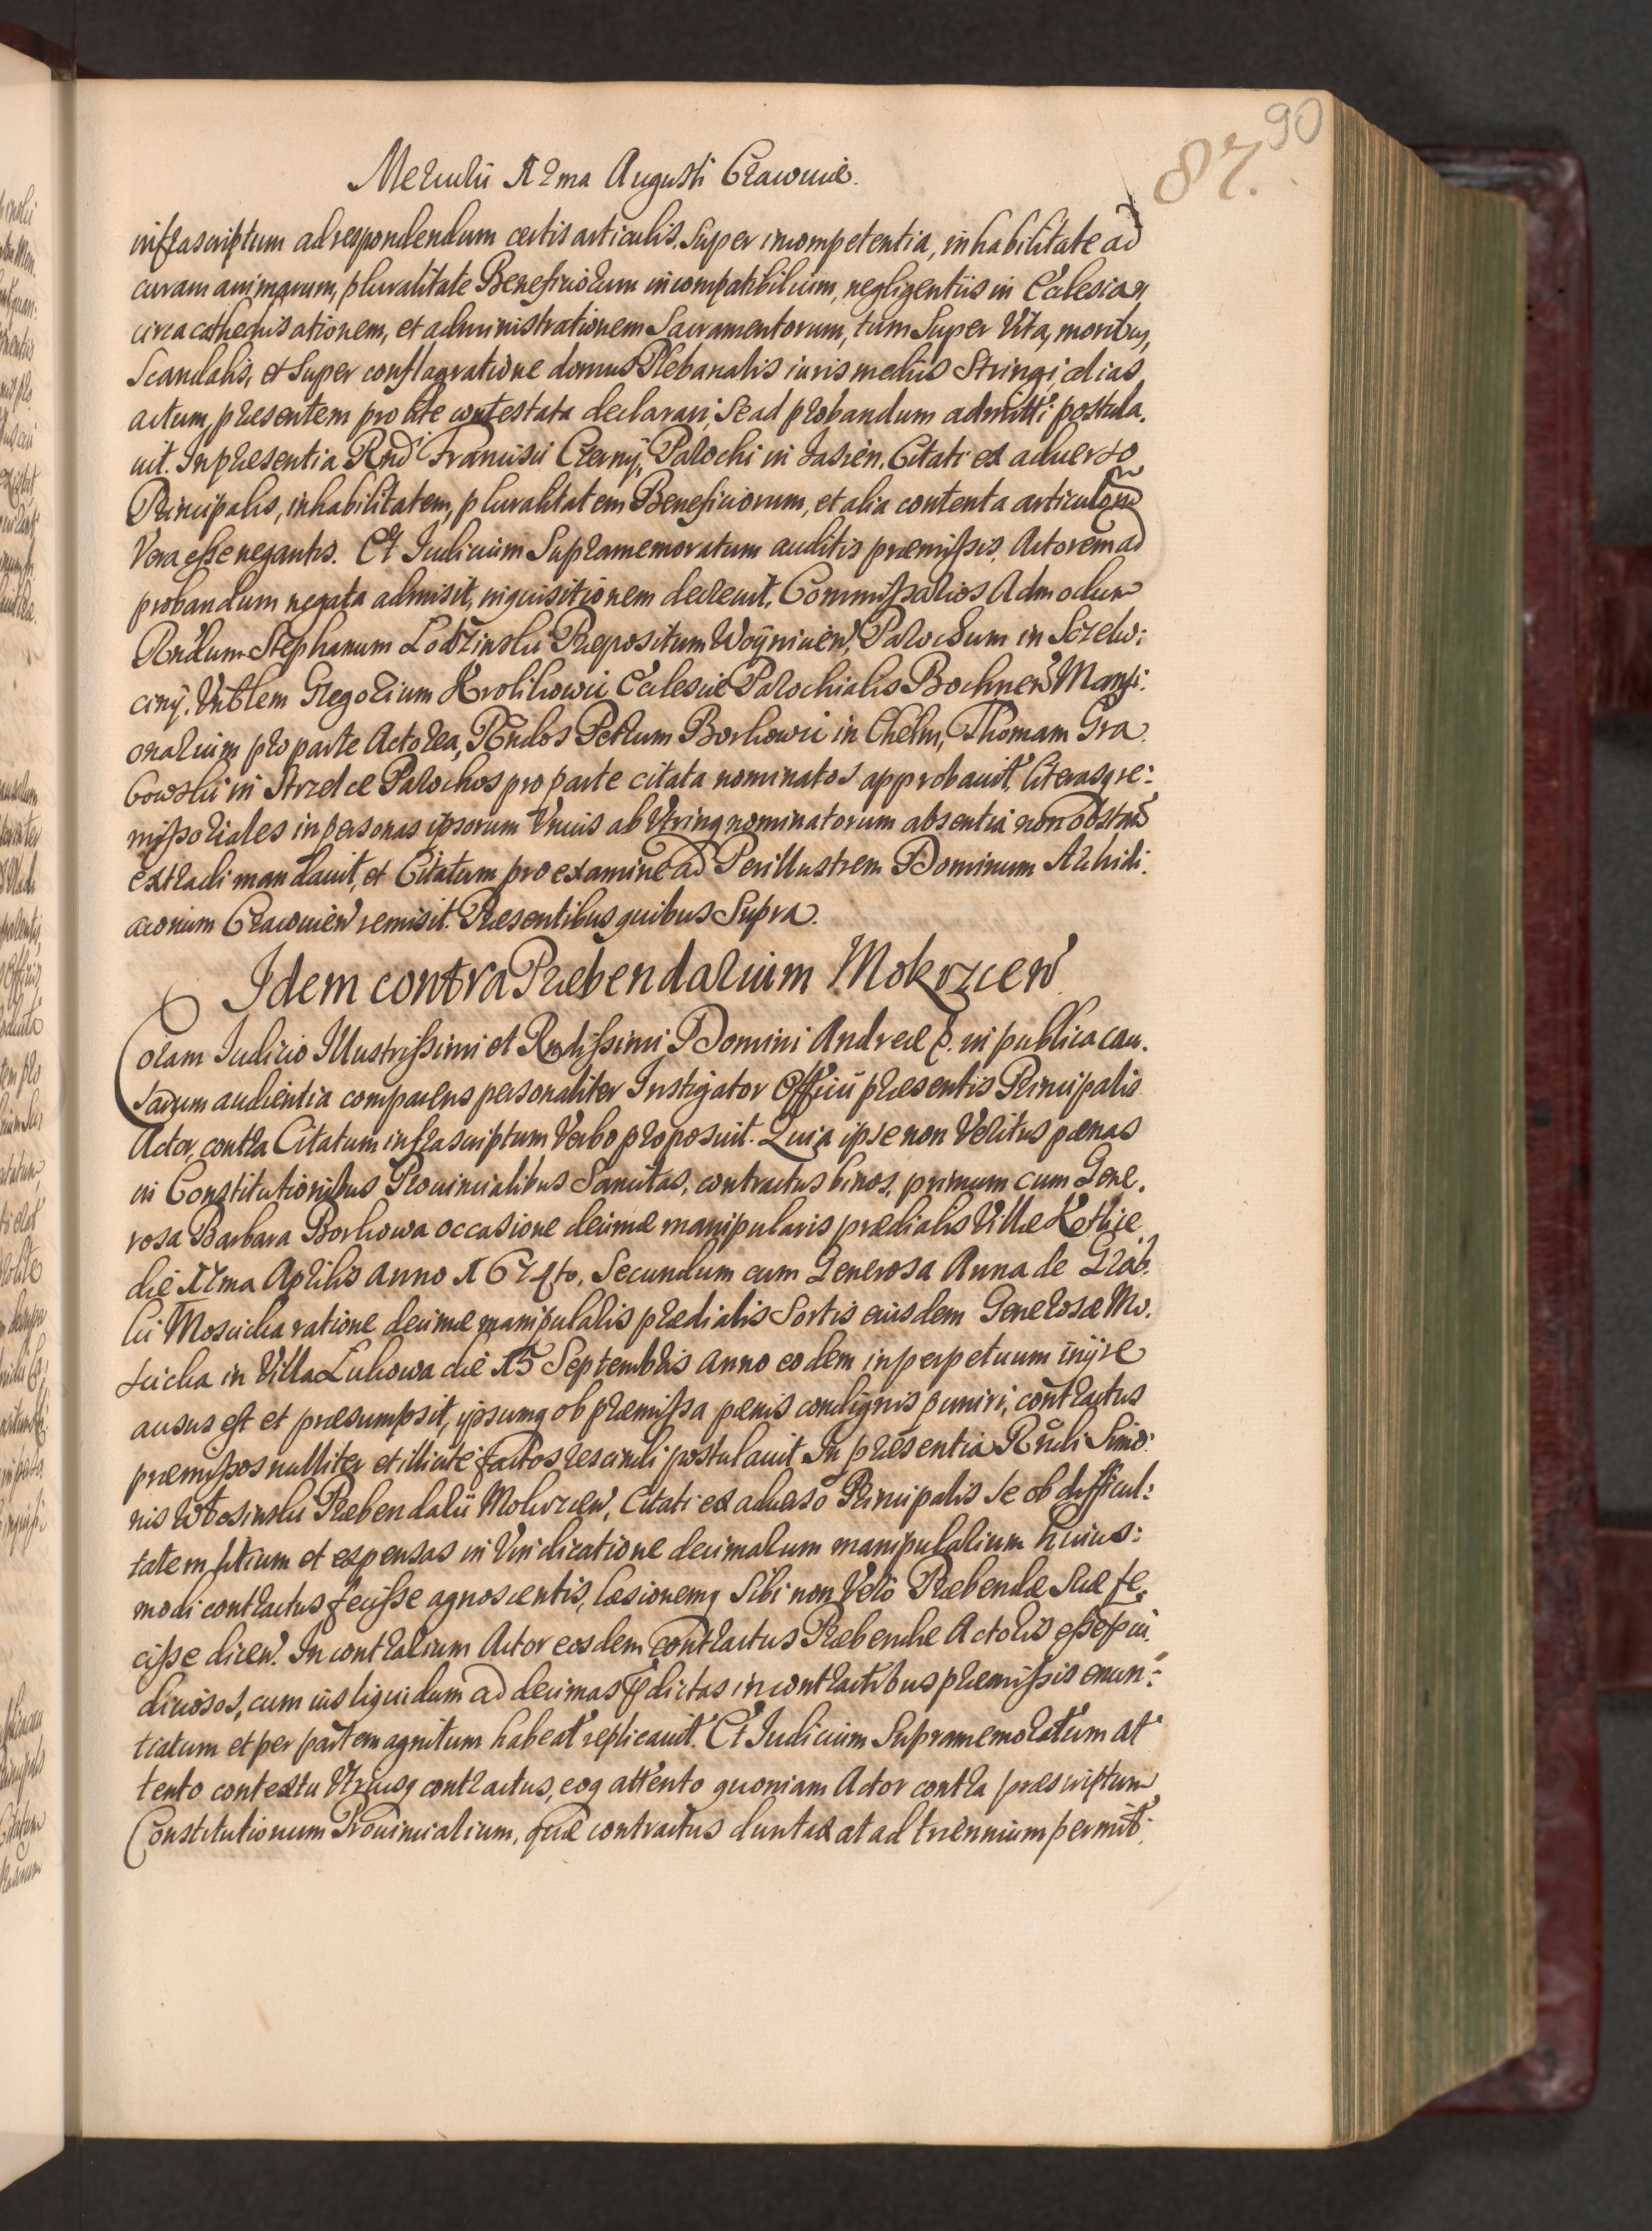 90
87.
Mercurii 12ma Augusti Cracoviæ.
infrascriptum ad respondendum certis articulis, super incompetentia, inhabilitate ad
curam animarum, pluralitate Beneficiorum incompatibilium, negligentiis in Ecclesia
circa cathechisationem, et administrationem Sacramentorum, tum Super Vita, moribus,
Scandalis, et Super conflagratione domus Plebanalis iuris mediis Stringi, alias
actum præsentem pro lite contestata declarari, Se ad probandum admitti postula-
uit. In præsentia Rndi Francisci Czerny, Parochi in Jasien. Citati ex aduerso
Principalis, inhabilitatem, pluralitatem Beneficiorum, et alia contenta articulorum
Vera esse negantis. Et Iudicium Supramemoratum auditis præmissis, Actorem ad
probandum negata admisit, inquisitionem decreuit, Commissarios Admodum
Rndum Stephanum Lodzinski Præpositum Woynicen, Parochum in Szczw:
ciny. Vnblem Gregorium Krolikowic Ecclesiæ Parochialis Bochnen Mansi:
onarium pro parte Actorea, Rndos Petrum Borkowic in Chelm, Thomam Gra-
bowski in Strzelce Parochos pro parte citata nominatos approbauit, literasq re:
missoriales in personas ipsorum Vnius ab Vtrinq nominatorum absentia non obstan
extradi mandauit, et Citatum pro examine ad Perillustrem Dominum Archidi:
aconum Cracouien remisit. Præsentibus quibus Supra.
Idem contra Præbendarium Mokrzcen
Coram Iudicio Illustrissimi et Rndissimi Domini Andreæ &. in publica cau-
sarum audientia comparens personaliter Instigator Officii præsentis Principalis
Actor, contra Citatum infrascriptum Verbo proposuit. Quia ipse non Veritus pœnas
in Constitutionibus Prouincialibus Sancitas, contractus binos, primum cum Gene-
rosa Barbara Borkowa occasione decimæ manipularis prædialis Villæ
die 12ma Aprilis Anno 1674to, Secundum cum Generosa Anna de Grab:
ki Moscicka ratione decimæ manipularis prædialis Sortis eiusdem Generosæ Mo-
scicka in Villa Lukowa die 15 Septembris anno eodem in perpetuum inijre
ausus est et præsumpsit, ipsumq ob præmissa pœnis condignis puniri, contractus
præmissos nulliter et illicite factos rescindi postulauit. In præsentia Rndi Simo:
nis Præbendarii Mokrzcen, Citati ex aduerso Principalis Se ob difficul:
tatem litium et expensas in Vindicatione decimarum manipularium huius:
modi contractus fecisse agnoscentis, læsionemq Sibi non Vero Præbendæ Suæ fe:
cisse dicen. In contrarium Actor eosdem contractus Præbendæ Actoris esse præiu-
diciosos, cum ius liquidum ad decimas prædictas in contractibus præmissis enun:
tiatum et per partem agnitum habeat replicauit. Et Iudicium Supramemoratum at
tento contextu Vtriusq contractus, eoq attento quoniam Actor contra præscriptum
Constitutionum Prouincialium, quæ contractus duntaxat ad triennium permit: